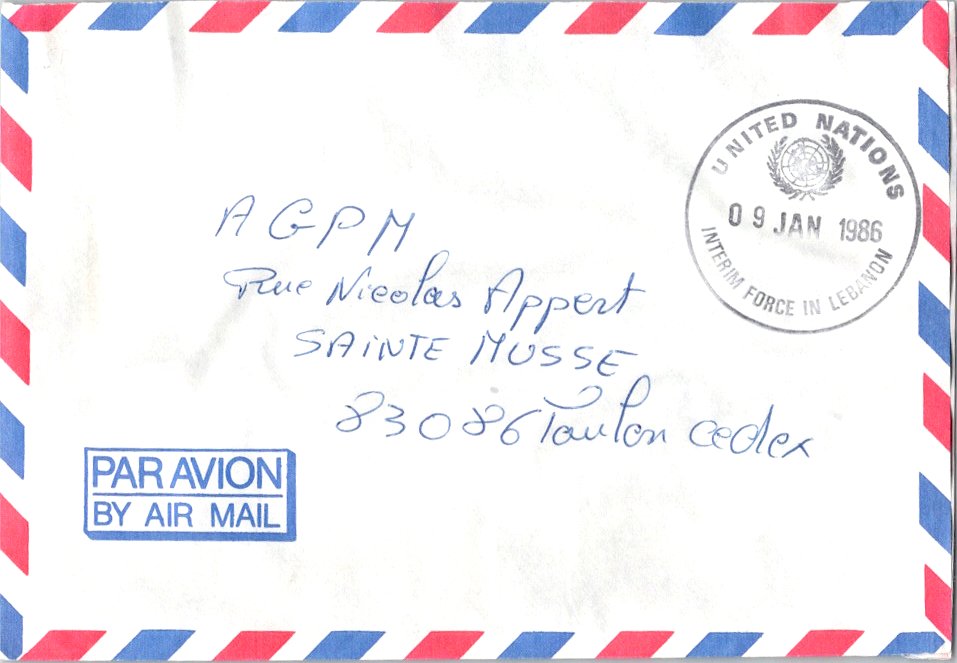 UNITED NATIONS
09 JAN 1986
INTERIM FORCE IN LEBANON
AGPM
Rue Nicolas Appert
SAINTE MUSSE
83086 Toulon cedex
PAR AVION
BY AIR MAIL